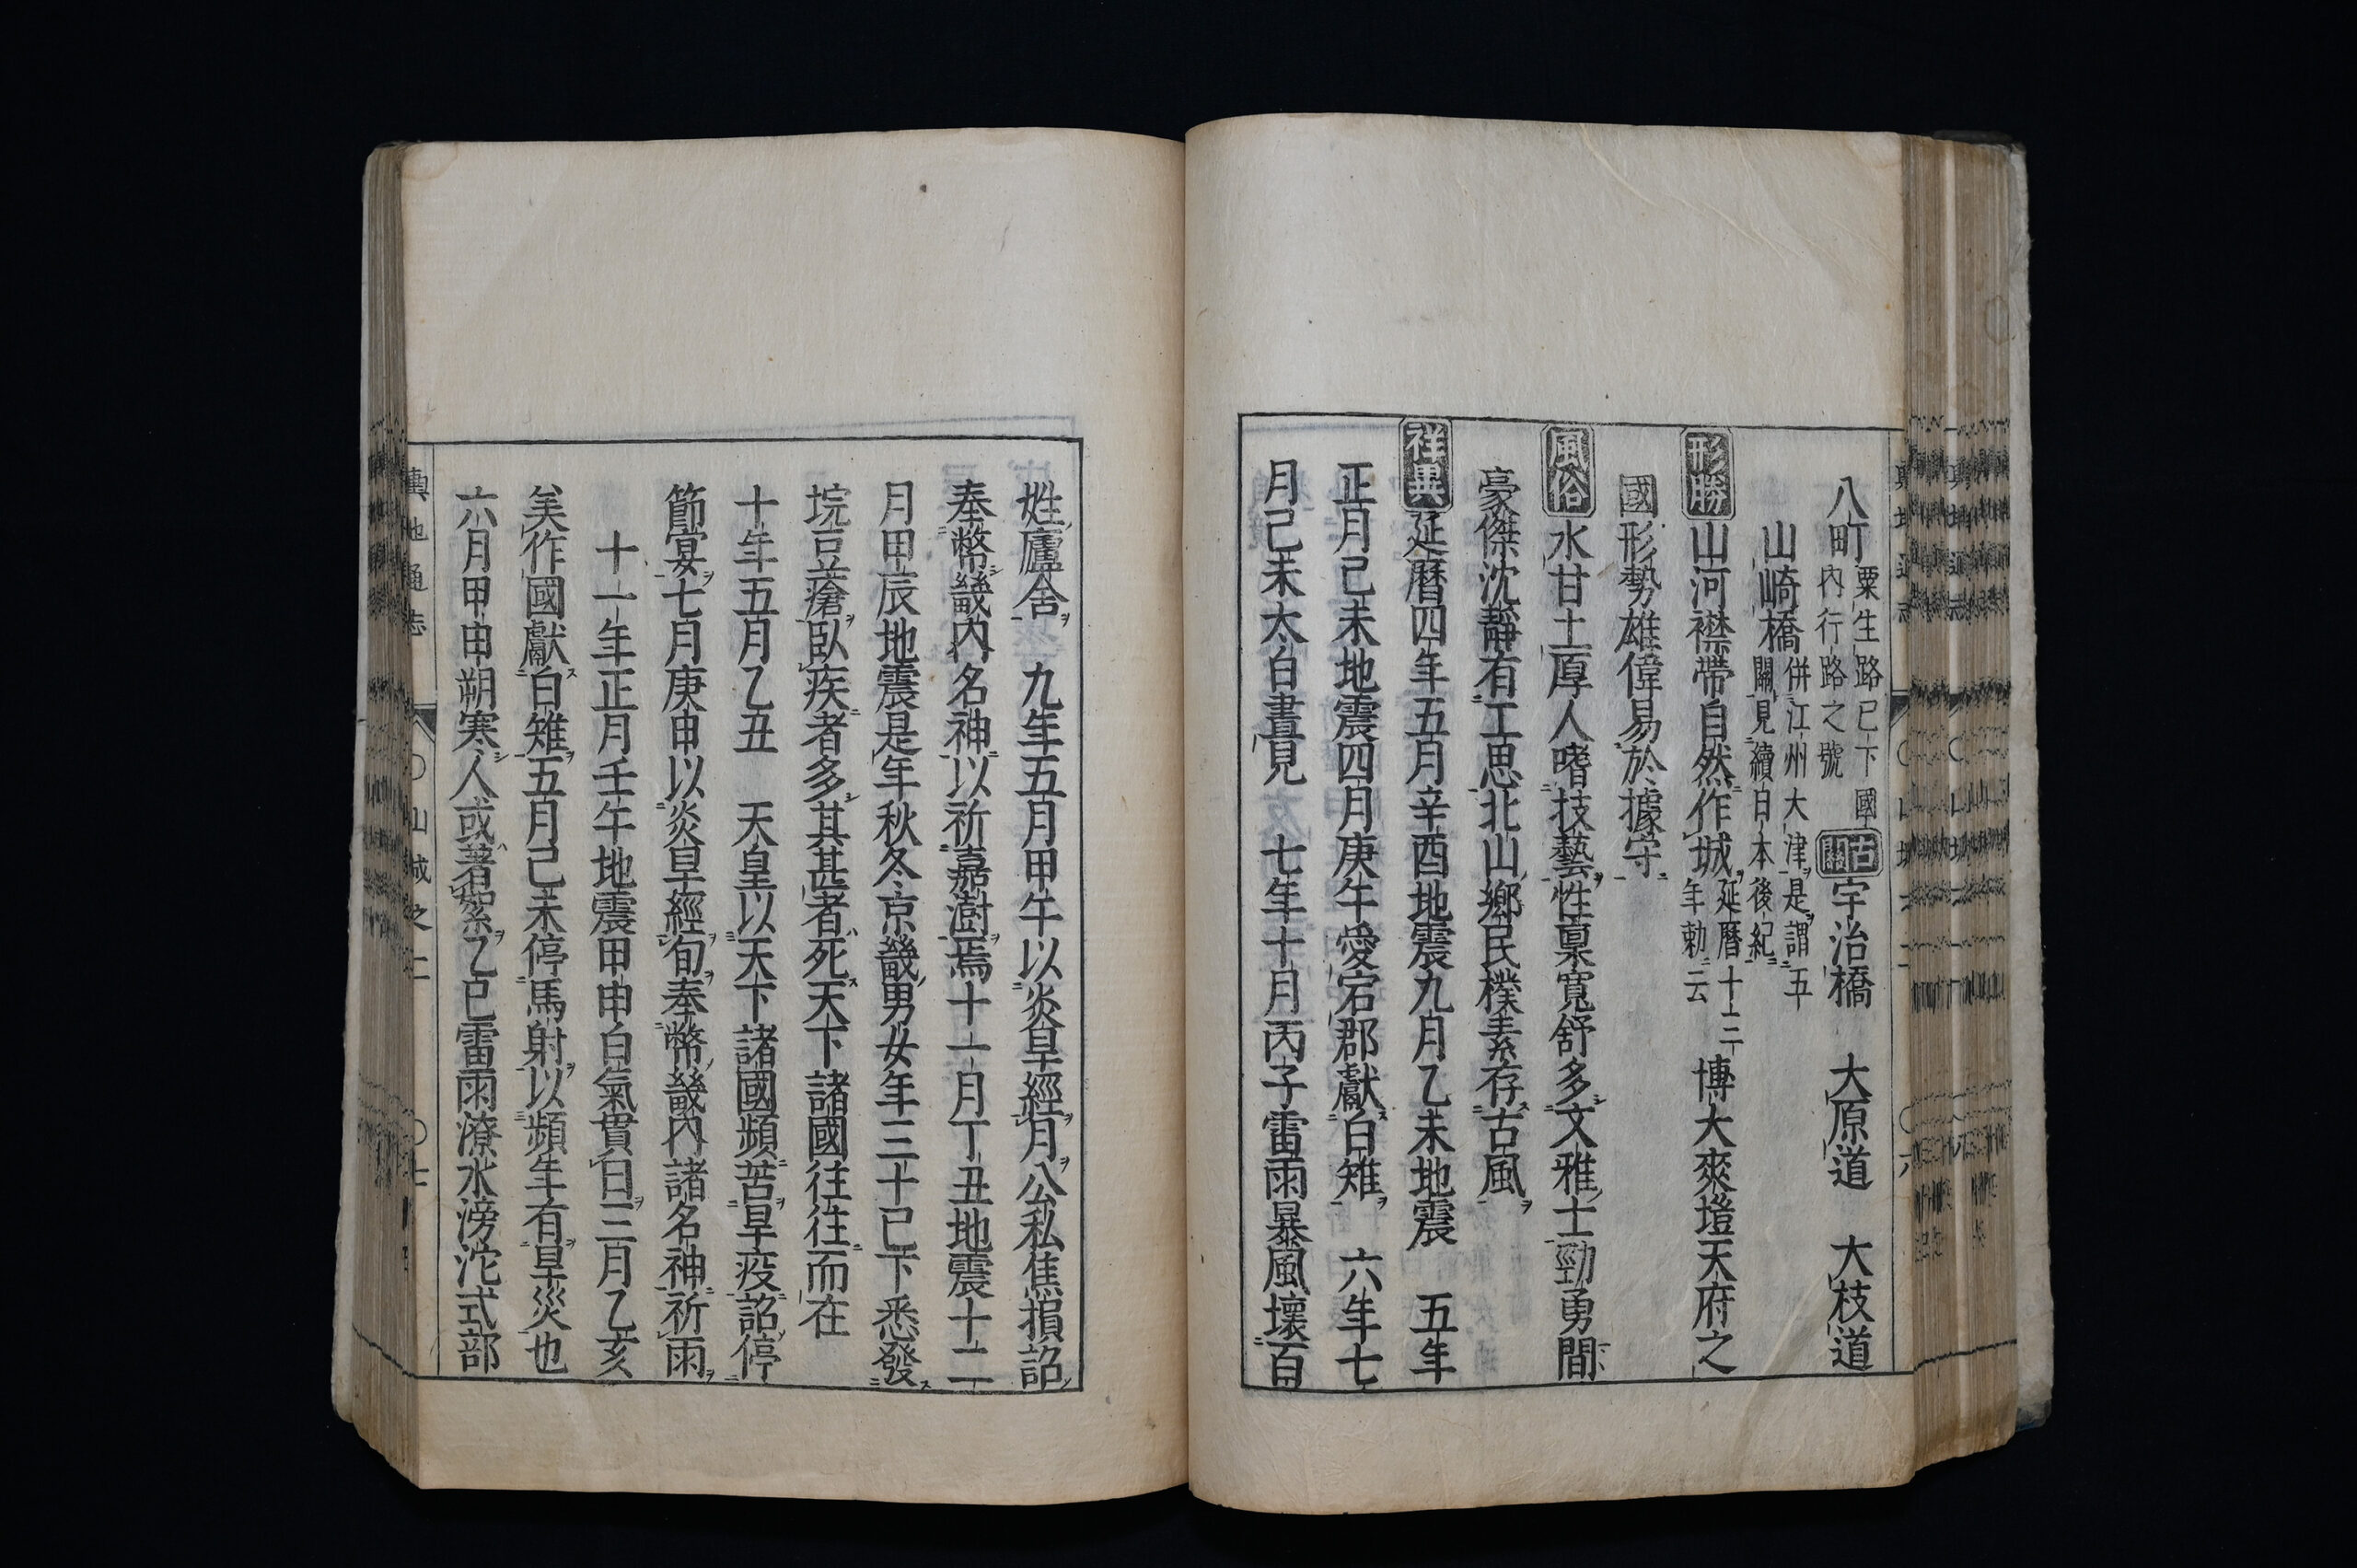 八町粟生路已下國内行路之號古關宇治橋　大原道　大枝道
山崎橋併江州大津是謂五關見續日本後紀
形勝山河襟帶自然作城延曆十三年勅云博大爽塏天府之
國形勢雄偉易於據守
風俗水甘土厚人嗜技藝性稟寬舒多文雅士勁勇間
豪傑沈靜有工思北山鄉民樸素存古風
祥異延曆四年五月辛酉地震九月乙未地震　五年
正月己未地震四月庚午愛宕郡獻白雉　六年七
月己未太白晝見　七年十月丙子雷雨暴風壞百
姓廬舍　九年五月甲午以炎旱經月公私焦損詔
奉幣畿内名神以祈嘉澍焉十一月丁丑地震十二
月甲辰地震是年秋冬京畿男女年三十已下悉發
垸豆瘡臥疾者多其甚者死天下諸國往往而在
十年五月乙丑　天皇以天下諸國頻苦旱疫詔停
節宴七月庚申以炎旱經旬奉幣畿内諸名神祈雨
十一年正月壬午地震甲申白氣貫日三月乙亥
美作國獻白雉五月己未停馬射以頻年有旱災也
六月甲申朔寒人或著絮乙巳雷雨潦水滂沱式部
輿地通志　山城之二